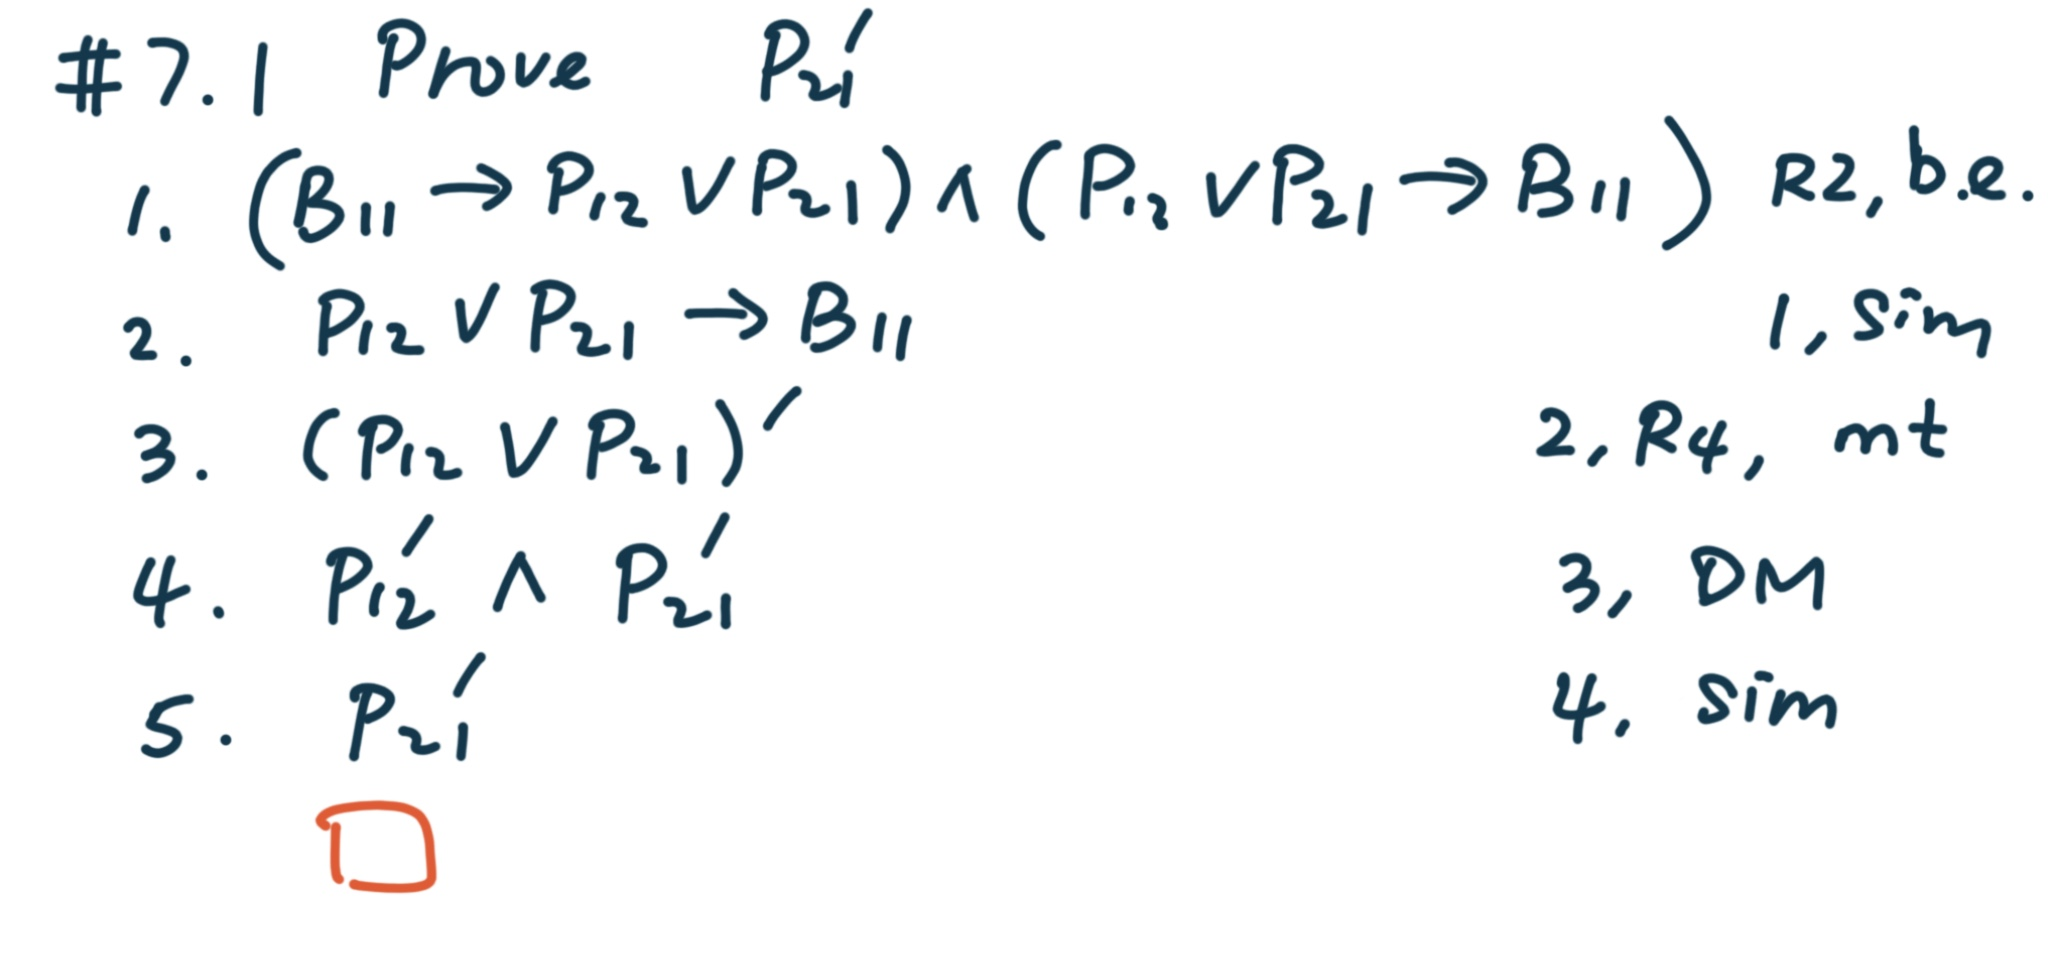 #7.1 Prove P₂₁′
1. (B₁₁ → P₁₂ ∨ P₂₁) ∧ (P₁₂ ∨ P₂₁ → B₁₁) R2, b.e.
2. P₁₂ ∨ P₂₁ → B₁₁ 1, sim
3. (P₁₂ ∨ P₂₁)′ 2, R4, mt
4. P₁₂′ ∧ P₂₁′ 3, DM
5. P₂₁′ 4, sim